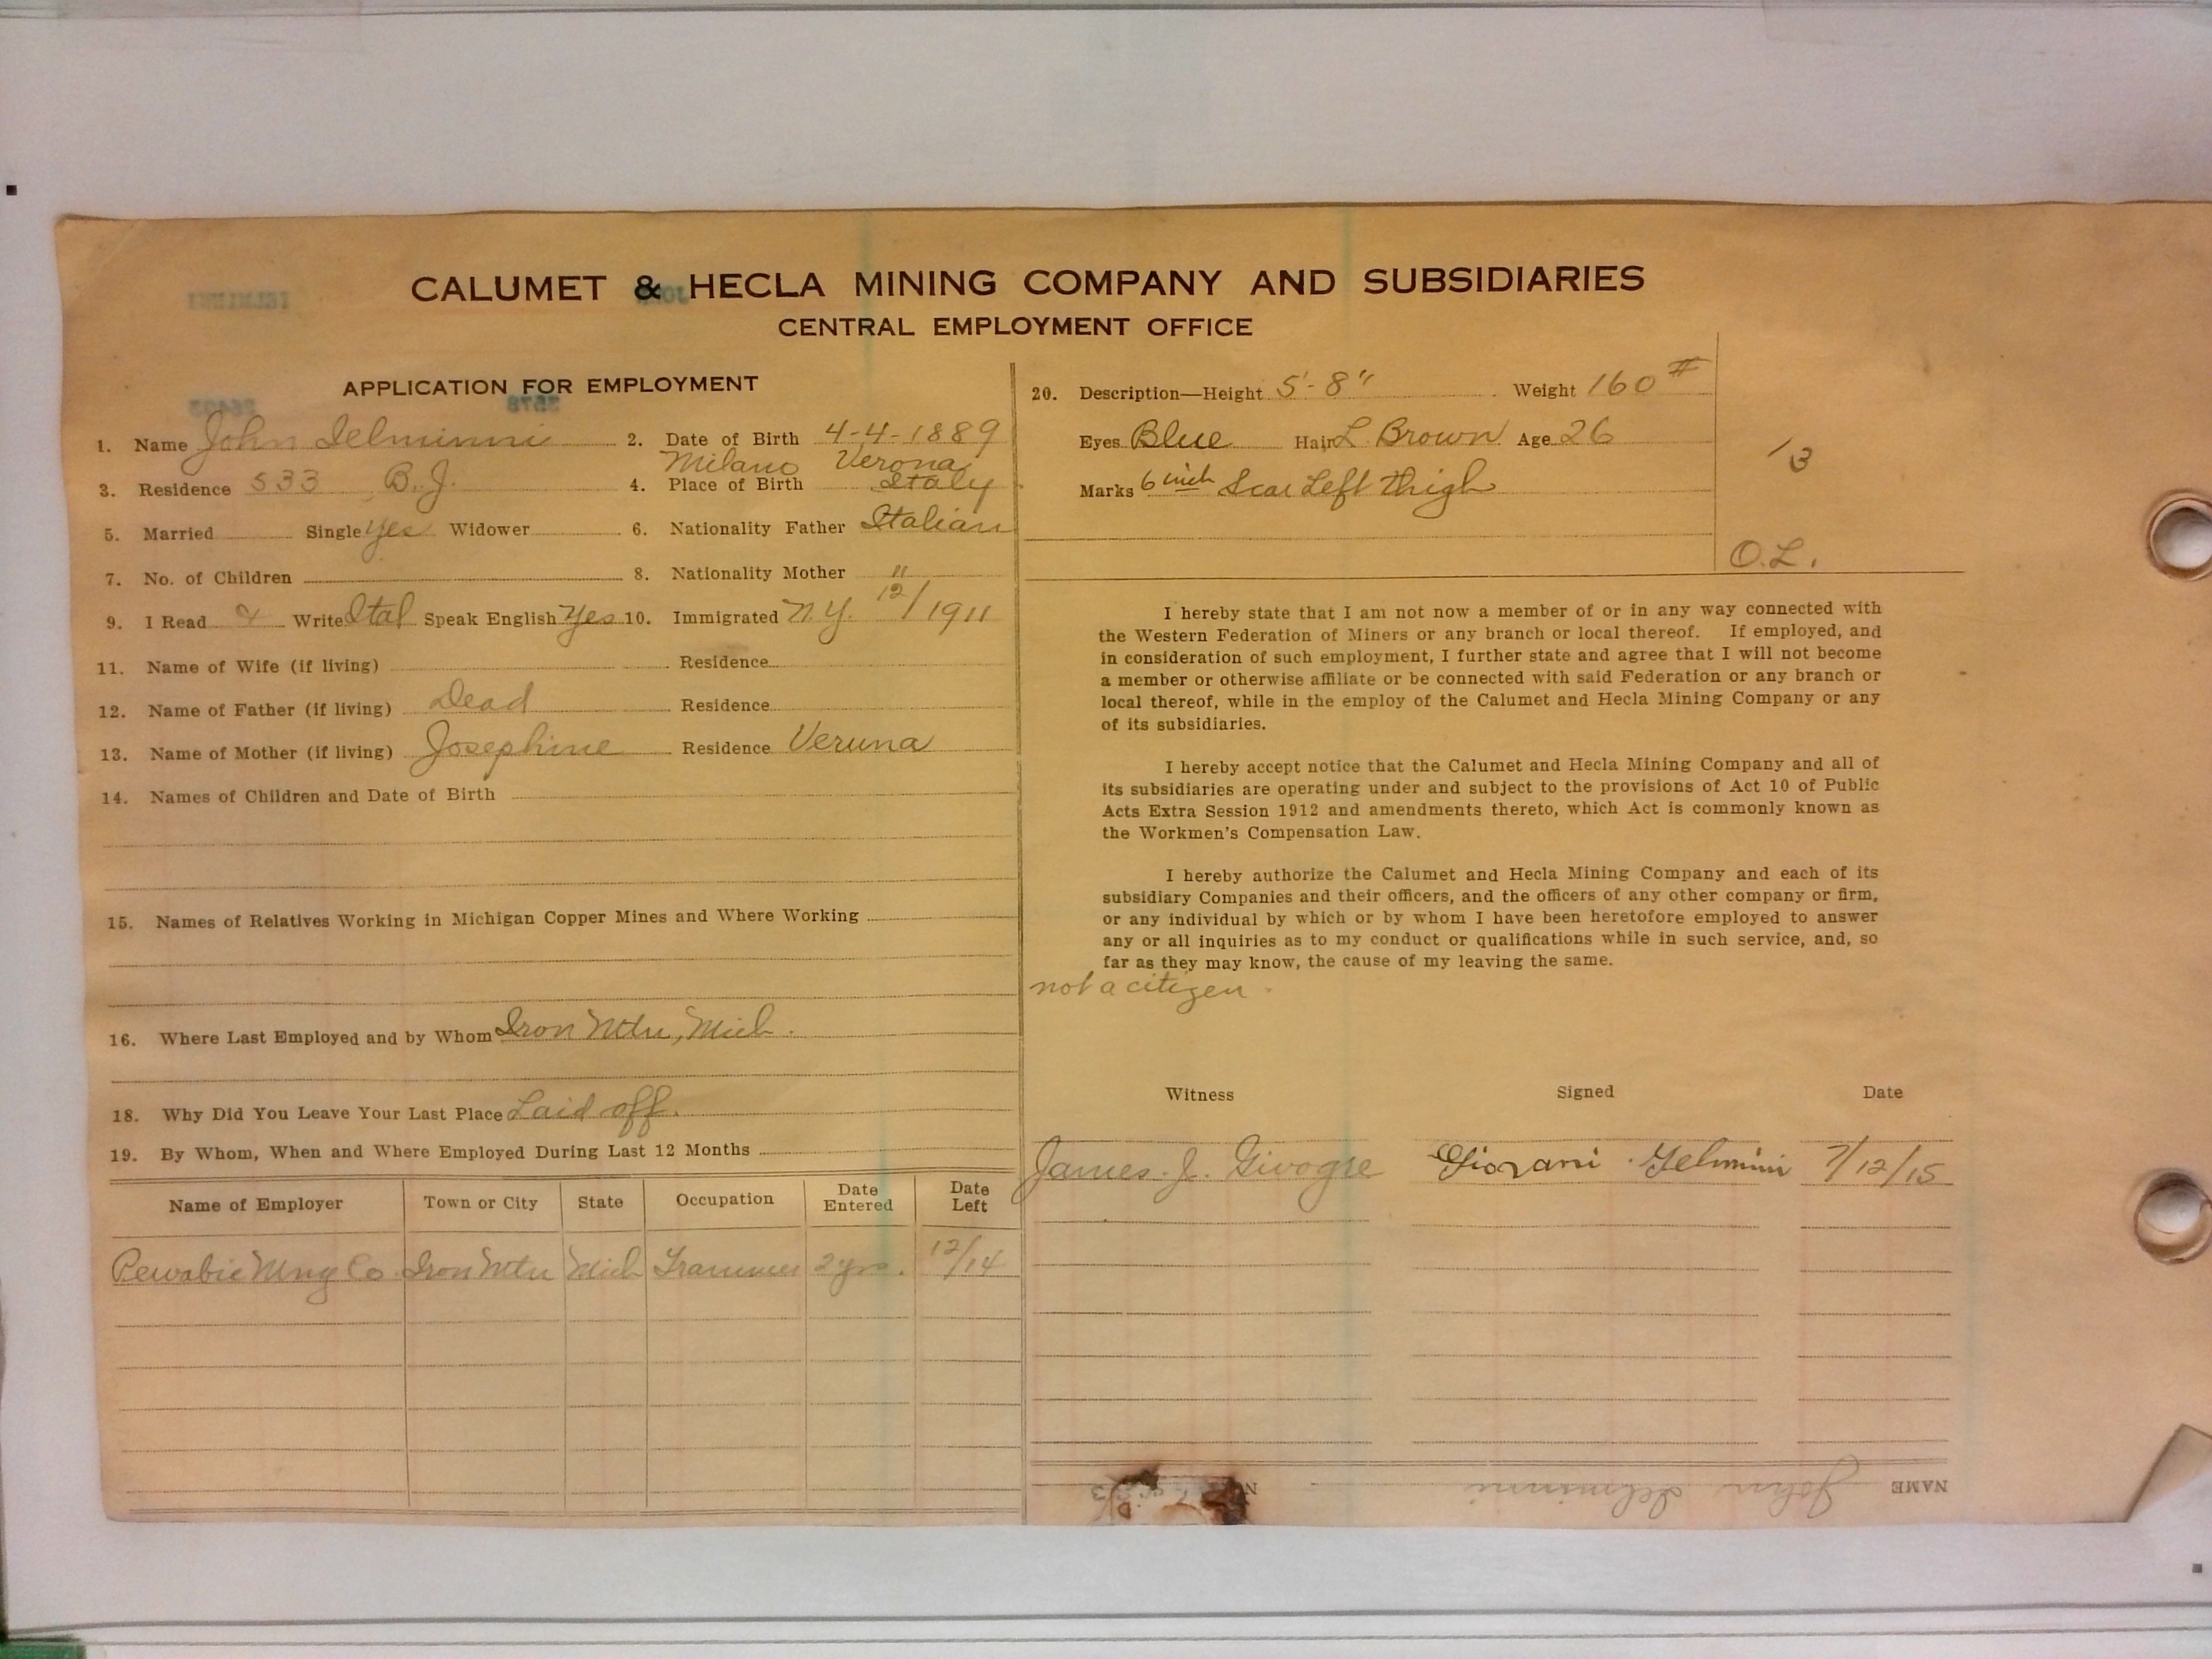 CALUMET & HECLA MINING COMPANY AND SUBSIDIARIES
CENTRAL EMPLOYMENT OFFICE
APPLICATION FOR EMPLOYMENT
1. Name John Ielminni 2. Date of Birth 4-4-1889
Milano Verona
3. Residence 533 B.J. 4. Place of Birth Italy
5. Married Single Yes Widower 6. Nationality Father Italian
7. No. of Children 8. Nationality Mother "
9. I Read & Write Ital Speak English Yes 10. Immigrated N.Y. 12/1911
11. Name of Wife (if living) Residence
12. Name of Father (if living) Dead Residence
13. Name of Mother (if living) Josephine Residence Veruna
14. Names of Children and Date of Birth
15. Names of Relatives Working in Michigan Copper Mines and Where Working
16. Where Last Employed and by Whom Iron Mtn, Mich.
18. Why Did You Leave Your Last Place Laid off.
19. By Whom, When and Where Employed During Last 12 Months
Name of Employer Town or City State Occupation Date Entered Date Left
Pewabic Mng Co. Iron Mtn Mich Trammer 2 yrs. 12/14
20. Description—Height 5'-8" Weight 160#
Eyes Blue Hair L. Brown Age 26
Marks 6 inch Scar Left thigh
13
O.L.
I hereby state that I am not now a member of or in any way connected with
the Western Federation of Miners or any branch or local thereof. If employed, and
in consideration of such employment, I further state and agree that I will not become
a member or otherwise affiliate or be connected with said Federation or any branch or
local thereof, while in the employ of the Calumet and Hecla Mining Company or any
of its subsidiaries.
I hereby accept notice that the Calumet and Hecla Mining Company and all of
its subsidiaries are operating under and subject to the provisions of Act 10 of Public
Acts Extra Session 1912 and amendments thereto, which Act is commonly known as
the Workmen's Compensation Law.
I hereby authorize the Calumet and Hecla Mining Company and each of its
subsidiary Companies and their officers, and the officers of any other company or firm,
or any individual by which or by whom I have been heretofore employed to answer
any or all inquiries as to my conduct or qualifications while in such service, and, so
far as they may know, the cause of my leaving the same.
not a citizen.
Witness Signed Date
James J. Givogre Giovani Gelmini 7/12/15
NAME John Ielminni